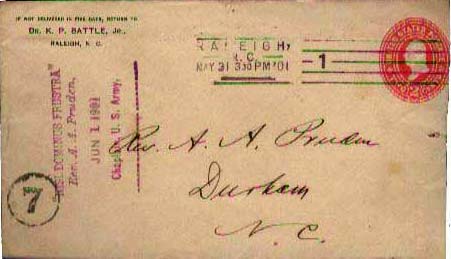 IF NOT DELIVERED IN FIVE DAYS, RETURN TO
DR. K. P. BATTLE, JR.,
RALEIGH, N. C.
RALEIGH,
N.C.
MAY 31 3 30 PM '01
1
"NISI DOMINUS FRUSTRA"
Rev. A. A. Pruden,
JUN 1 1901
Chaplain U. S. Army,
Rev. A. A. Pruden
Durham
N. C.
7